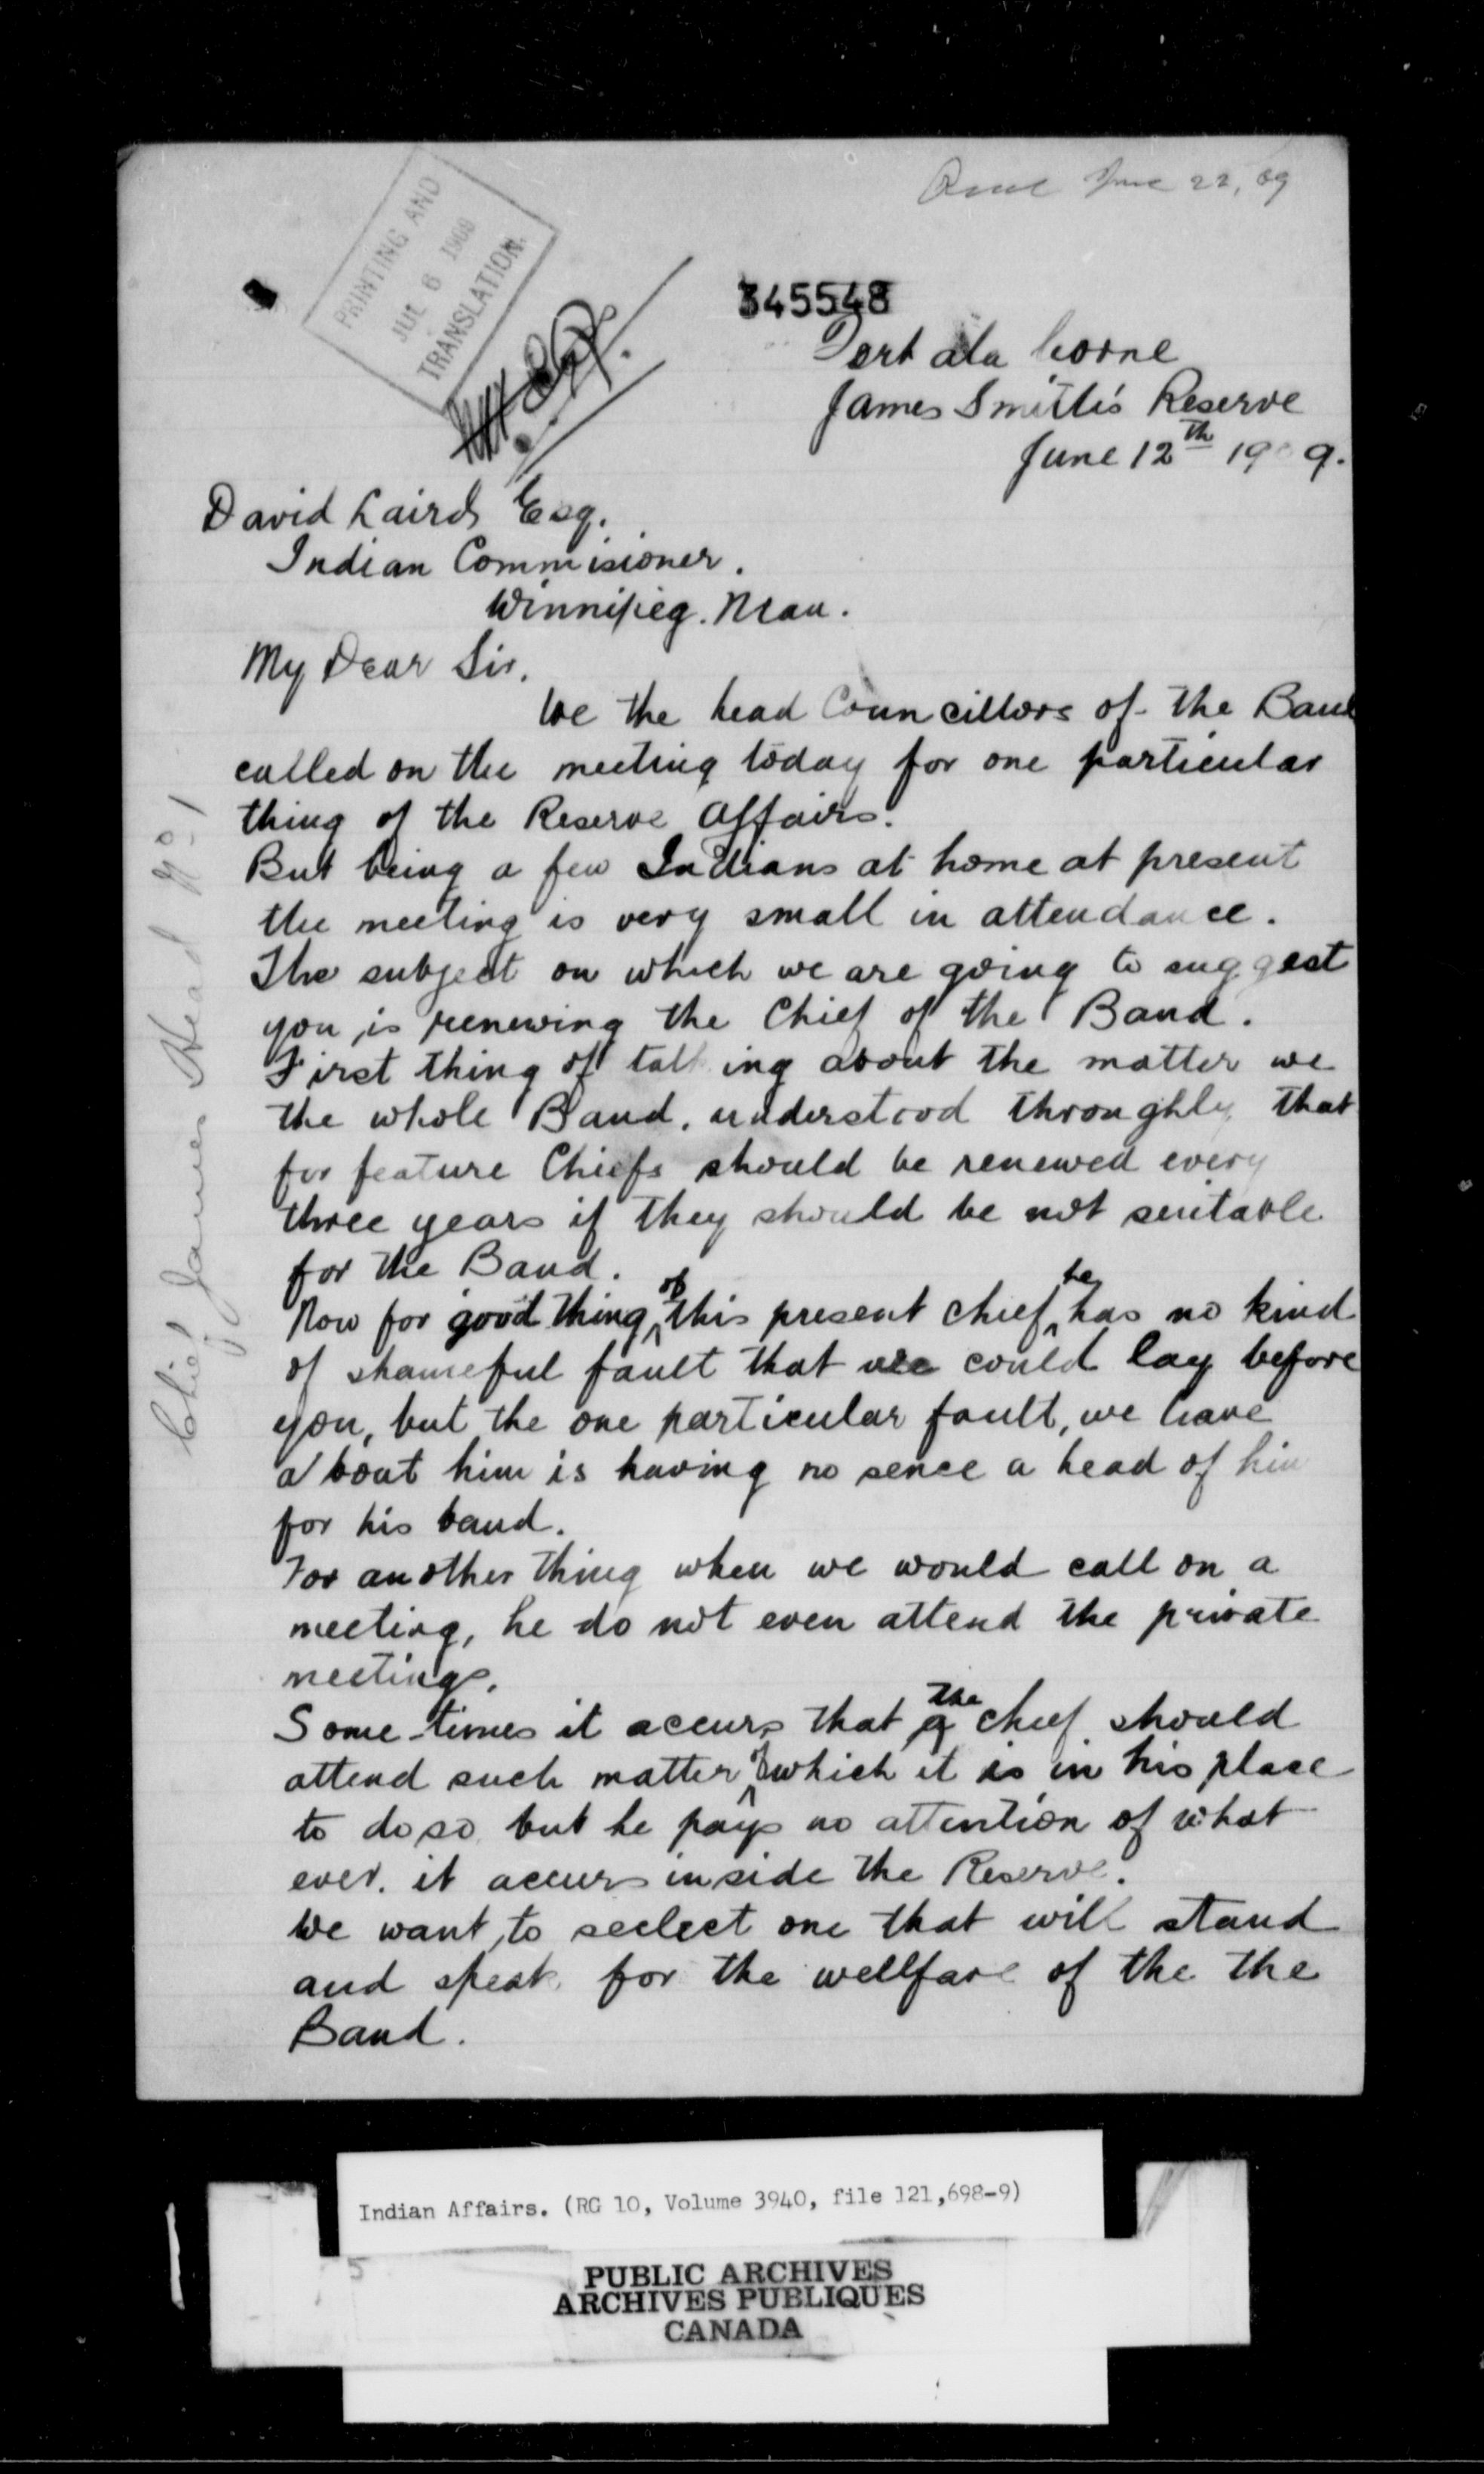 June 22, 09
PRINTING AND
JUL 6 1909
TRANSLATION.
345548
Fort ala Corne
James Smith's Reserve
June 12th 1909.
David Laird Esq.
Indian Commisioner.
Winnipeg. Man.
My Dear Sir,
We the head Councillors of the Band
called on the meeting today for one particular
thing of the Reserve Affairs.
But being a few Indians at home at present
the meeting is very small in attendance.
The subject on which we are going to suggest
you is renewing the Chief of the Band.
First thing of talking about the matter we
the whole Band, understood throughly that
for feature Chiefs should be renewed every
three years if they should be not seutable
for the Band.
Now for good thing of this present chief he has no kind
of shameful fault that we could lay before
you, but the one particular fault, we have
about him is having no sence a head of him
for his band.
For another thing when we would call on a
meeting, he do not even attend the private
meetings.
Some-times it accurs that the chief should
attend such matter of which it is in his place
to do so but he pays no attention of what
ever. it accurs inside the Reserve.
We want to seclect one that will stand
and speak for the wellfare of the the
Band.
Chief James Head No 1
Indian Affairs. (RG 10, Volume 3940, file 121,698-9)
5
PUBLIC ARCHIVES
ARCHIVES PUBLIQUES
CANADA